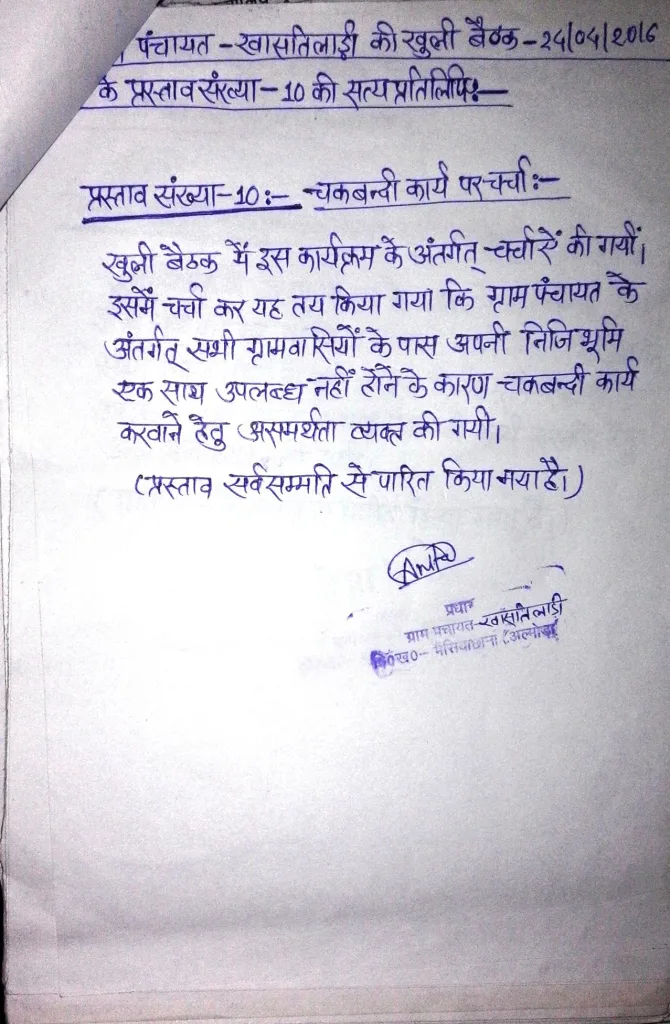 पंचायत - खासतिलाड़ी की खुली बैठक - 24/04/2016
के प्रस्ताव संख्या - 10 की सत्य प्रतिलिपि :-
प्रस्ताव संख्या - 10 :- चकबन्दी कार्य पर चर्चा :-
खुली बैठक में इस कार्यक्रम के अंतर्गत् चर्चाऐं की गयीं।
इसमें चर्चा कर यह तय किया गया कि ग्राम पंचायत के
अंतर्गत् सभी ग्रामवासियों के पास अपनी निजि भूमि
एक साथ उपलब्ध नहीं होने के कारण चकबन्दी कार्य
करवाने हेतु असमर्थता व्यक्त की गयी।
(प्रस्ताव सर्वसम्मति से पारित किया गया है।)
प्रधान
ग्राम पंचायत - खासतिलाड़ी
वि०ख०- भैसियाछाना (अल्मोड़ा)